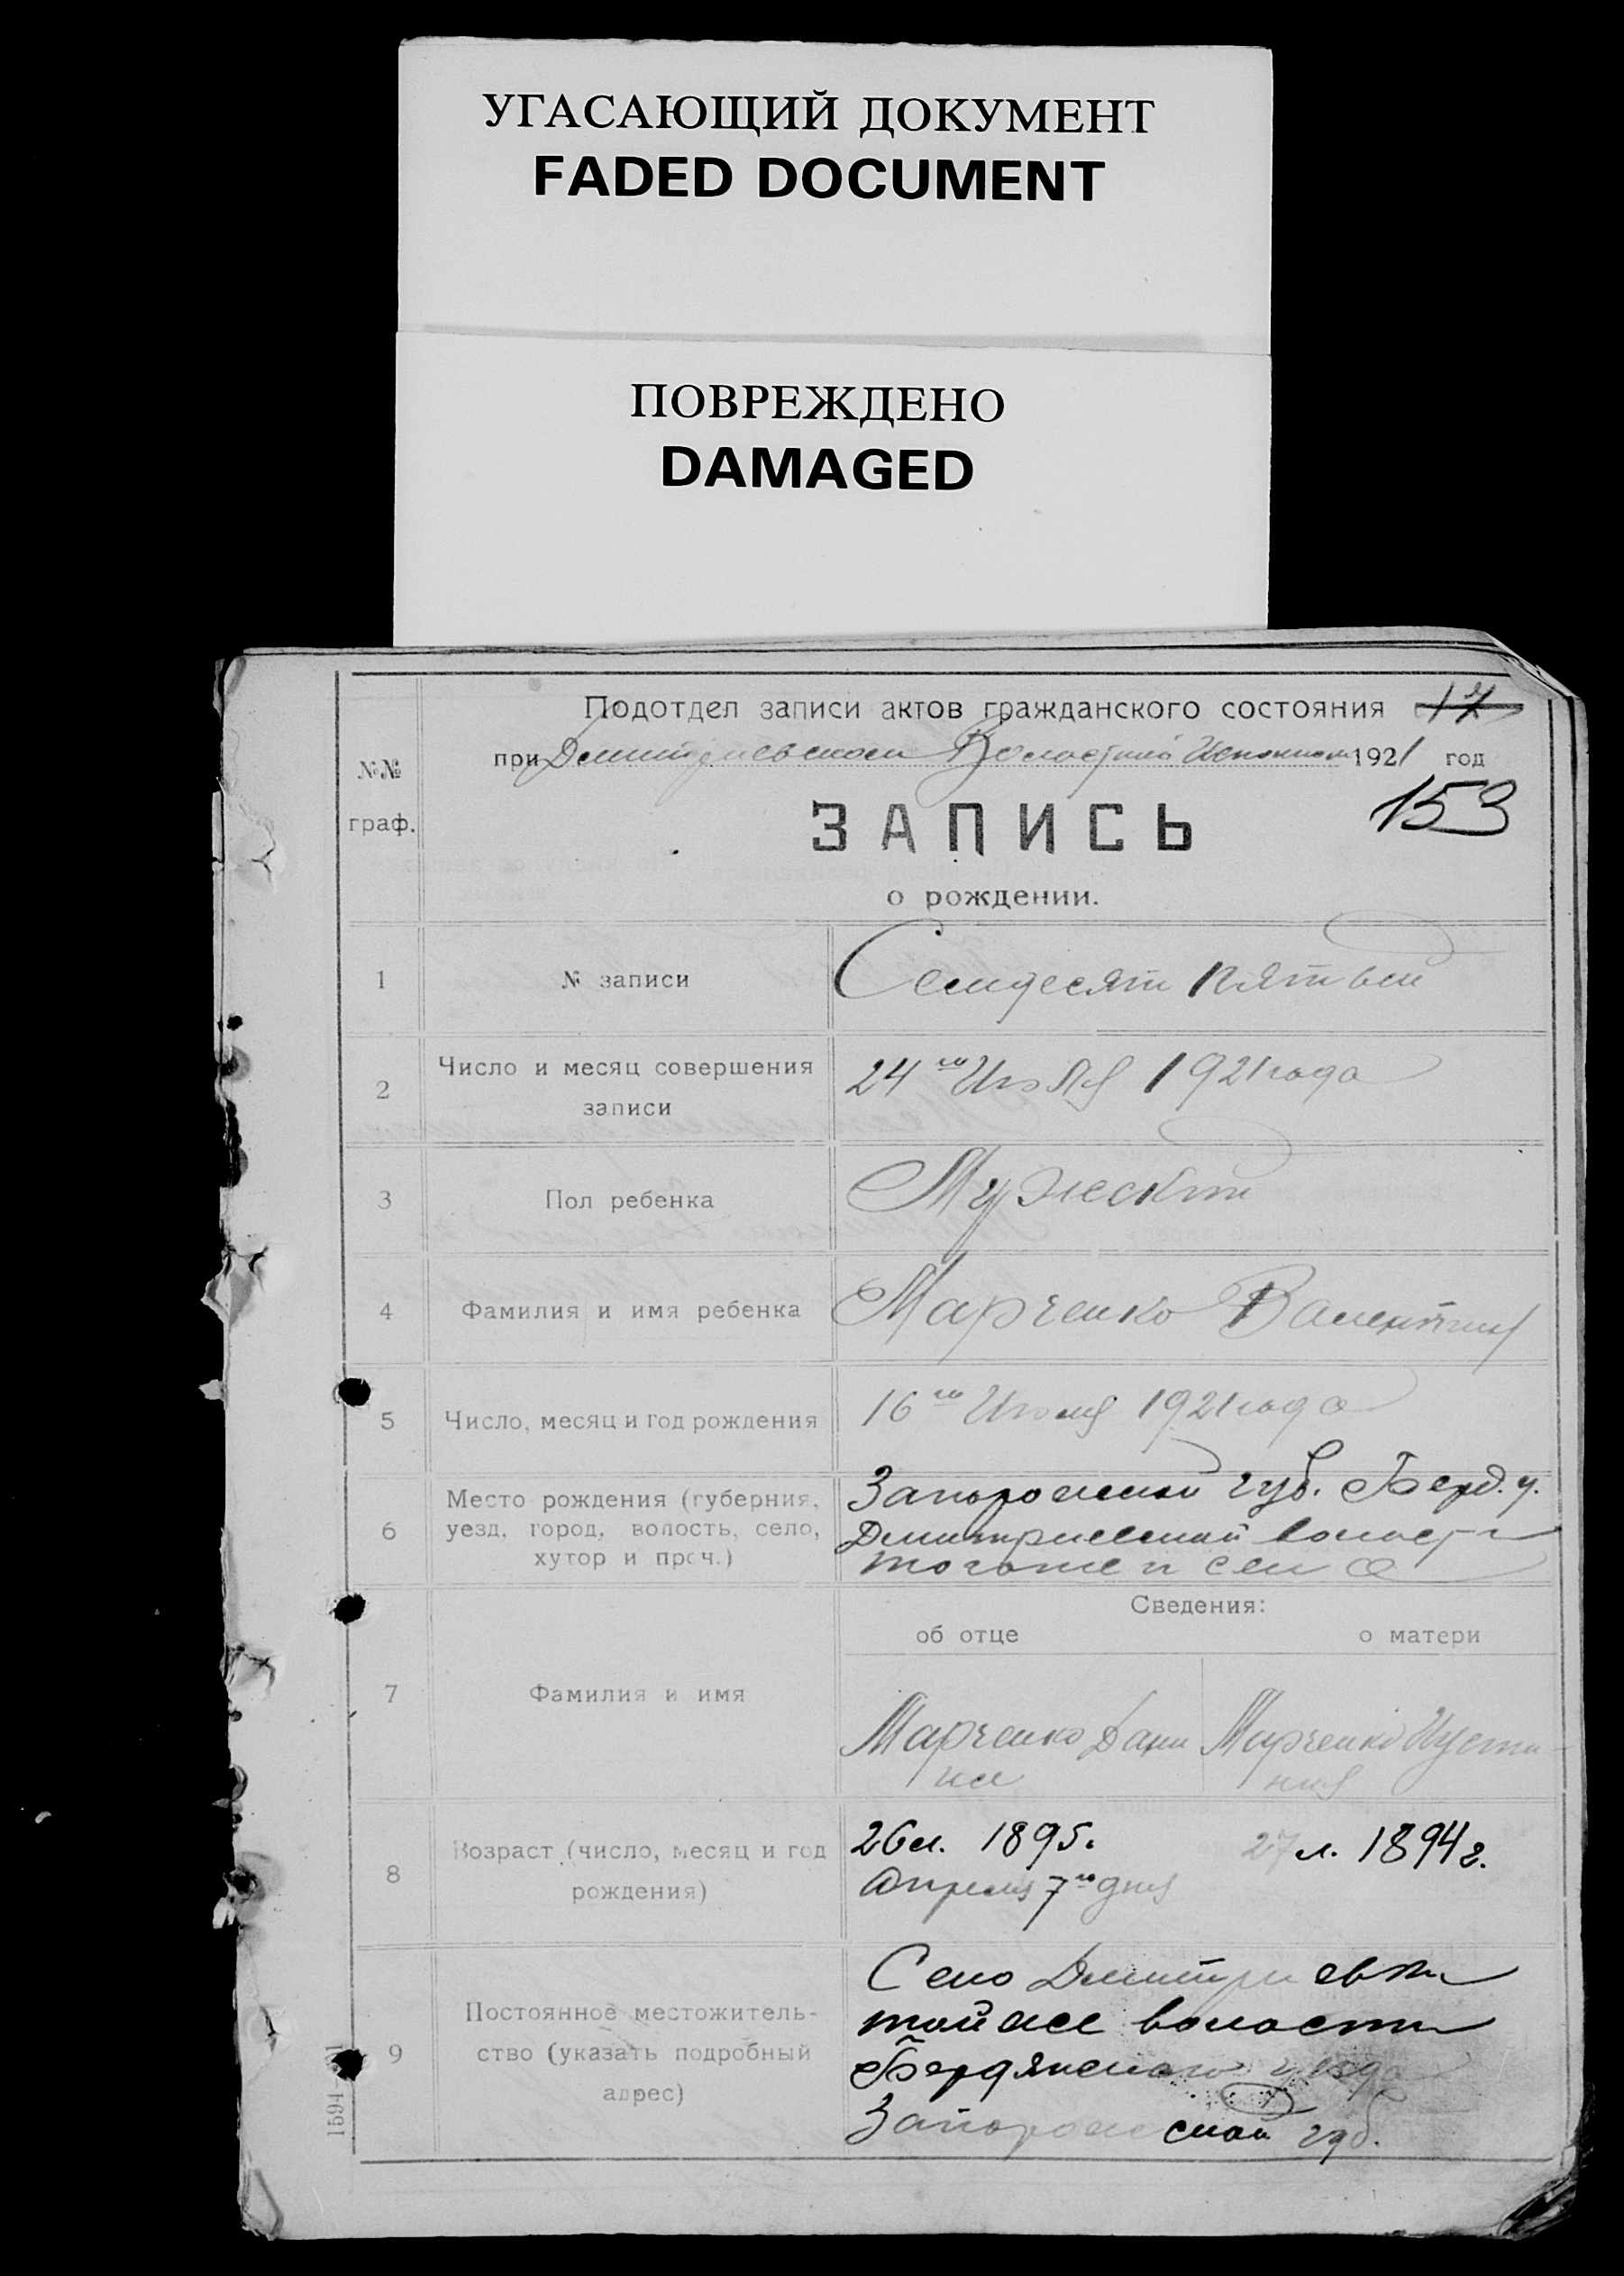 УГАСАЮЩИЙ ДОКУМЕНТ
FADED DOCUMENT
ПОВРЕЖДЕНО
DAMAGED
Подотдел записи актов гражданского состояния 17
при Дмитриевском Волостном Исполком 1921 год
№№
граф.
ЗАПИСЬ
153
о рождении.
1 № записи Семидесят пятый
2 Число и месяц совершения
записи
24го Июля 1921 года
3 Пол ребенка Мужеский
4 Фамилия и имя ребенка Марченко Валентин
5 Число, месяц и год рождения 16го Июля 1921 года
6 Место рождения (губерния,
уезд, город, волость, село,
хутор и проч.)
Запорожской губ. Берд. у.
Дмитриевской волости
тогоже и села
Сведения:
об отце о матери
7 Фамилия и имя
Марченко Дани
ил
Марченко Иусти-
ния
8 Возраст (число, месяц и год
рождения)
26 л. 1895.
Апреля 7го дня
27 л. 1894 г.
9 Постоянное местожитель-
ство (указать подробный
адрес)
Село Дмитриевки
тойже волости
Бердянского уезда
Запорожской губ.
1594